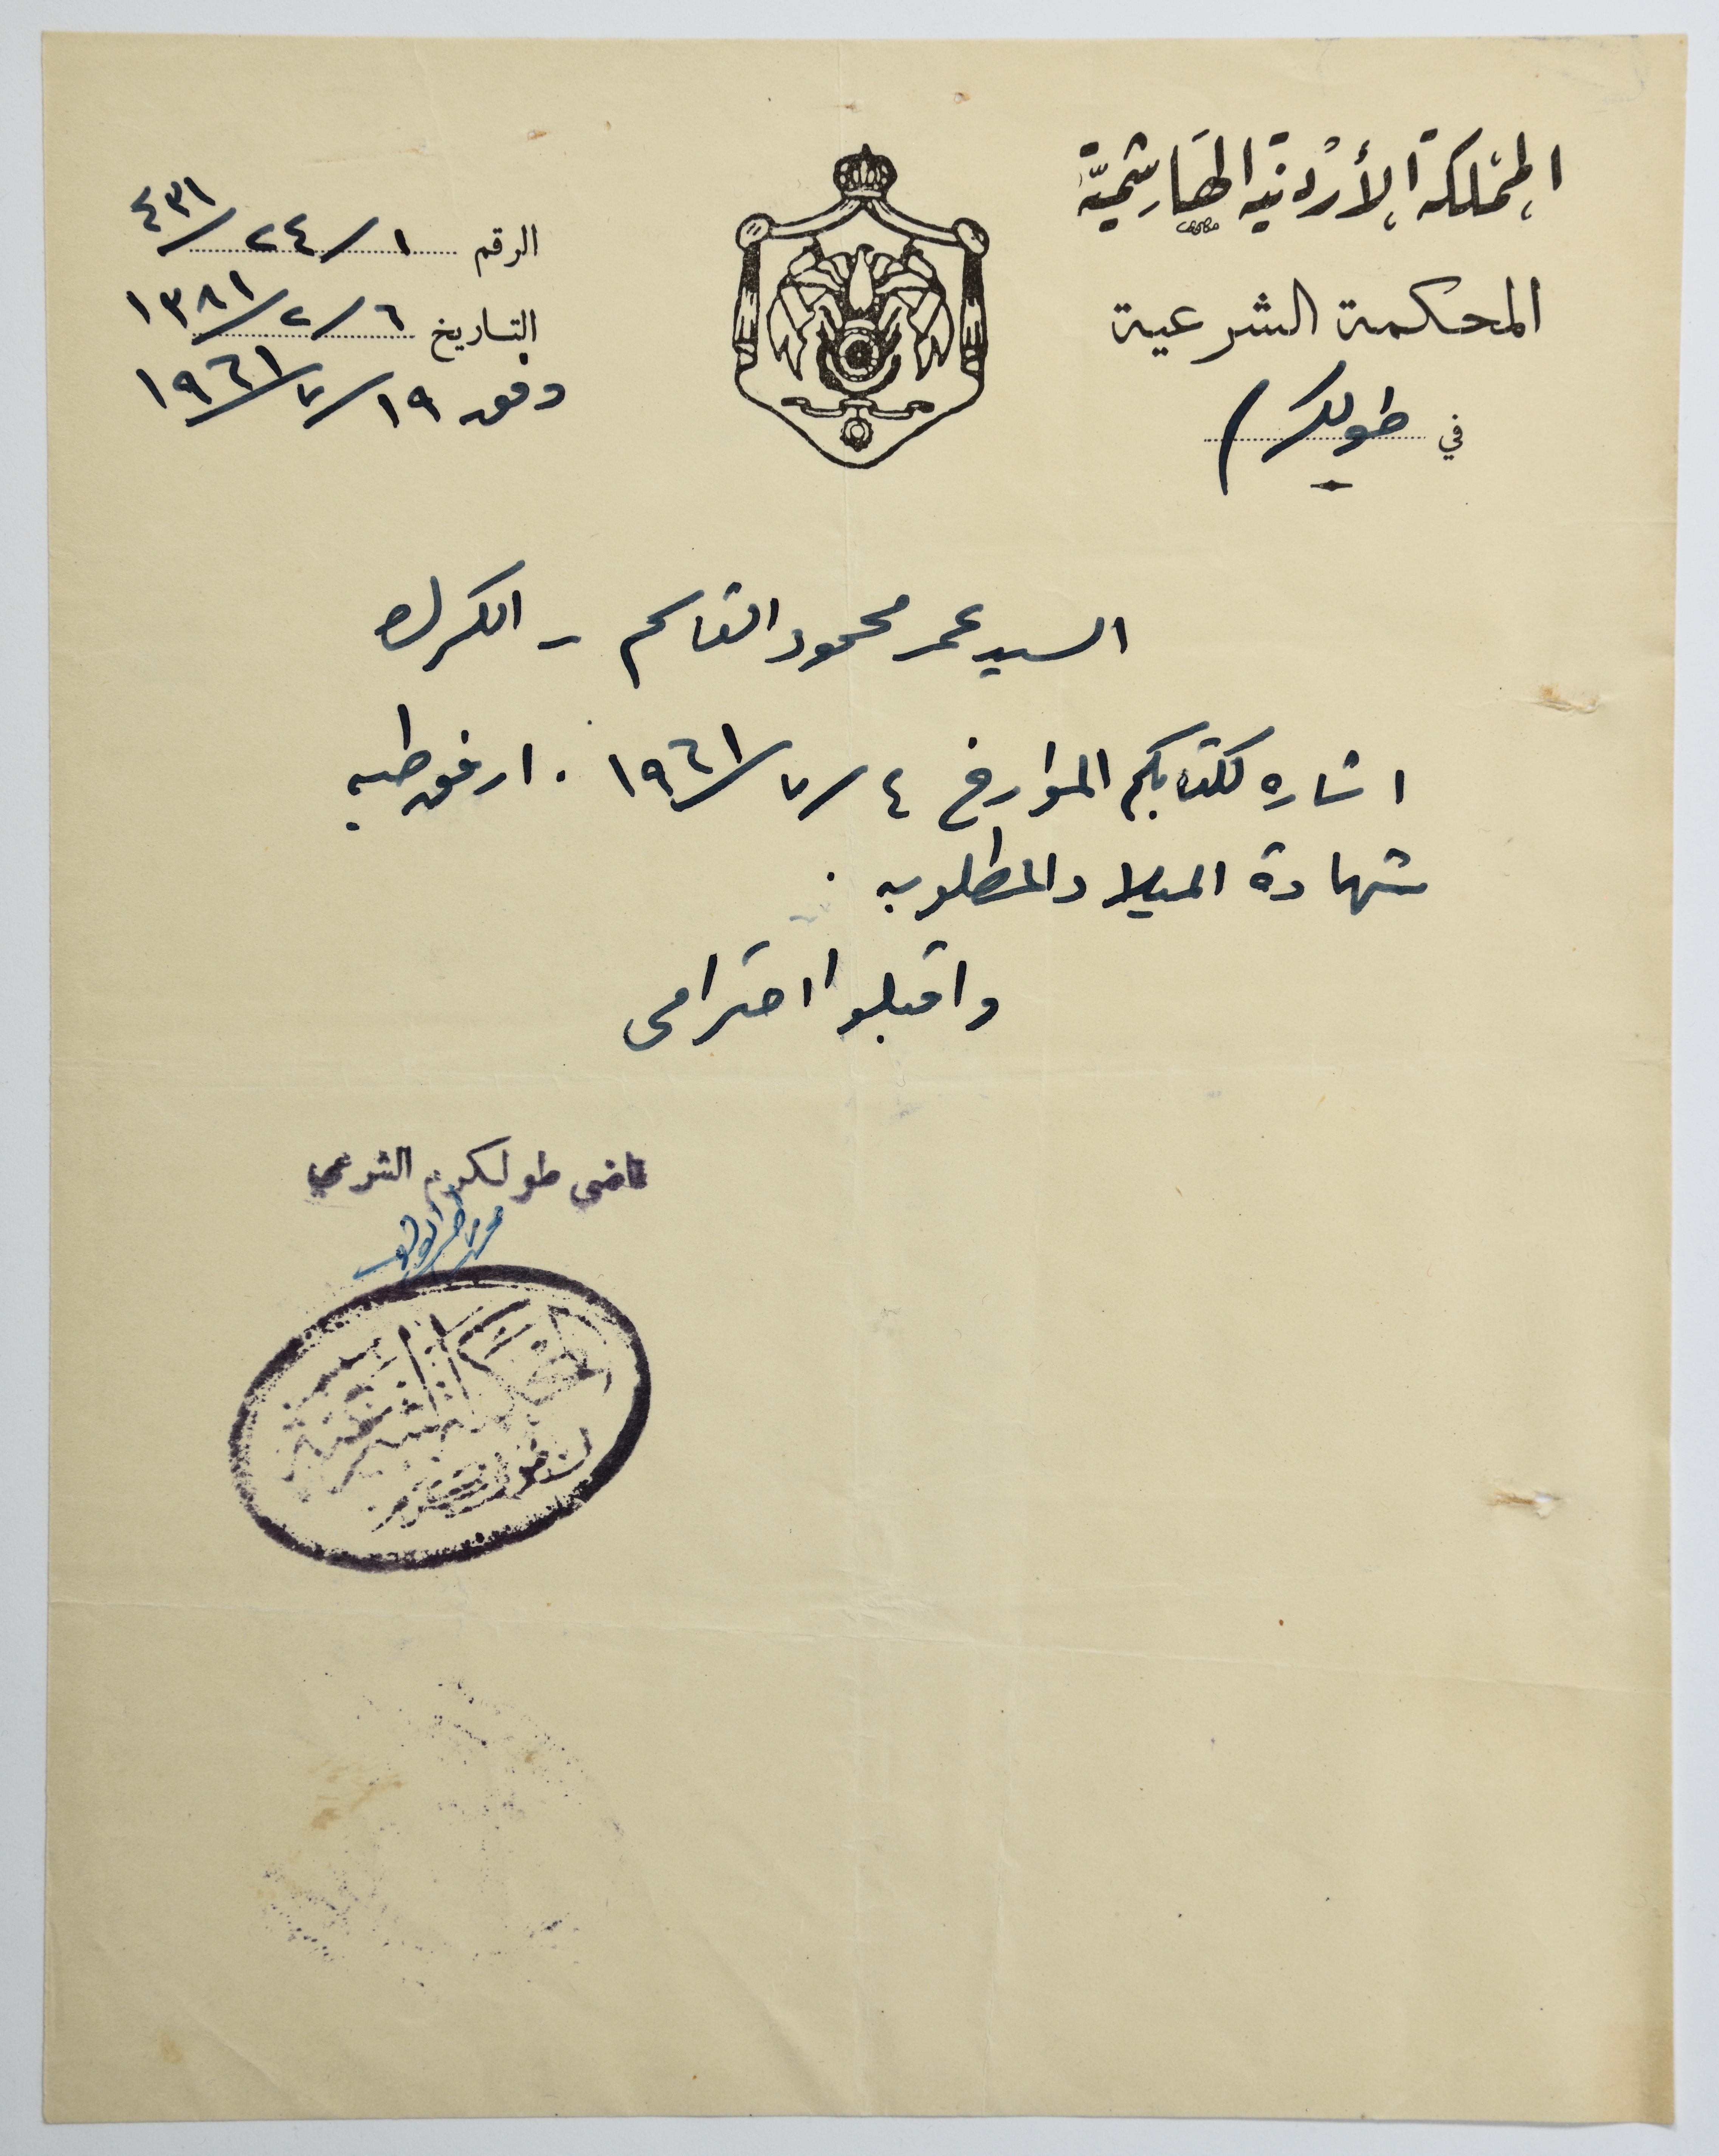 المملكة الأردنية الهاشمية
المحكمة الشرعية
في طولكرم
الرقم ١/٢٤/٤٣١
التاريخ ٦/٢/١٣٨١
وفق ١٩/٧/١٩٦١
السيد عمر محمود القاسم - الكرك
اشاره لكتابكم المؤرخ ٤/٧/١٩٦١ . ارفق طيه
شهادة الميلاد المطلوبه .
واقبلوا احترامى
قاضي طولكرم الشرعي
المحكمة الشرعية